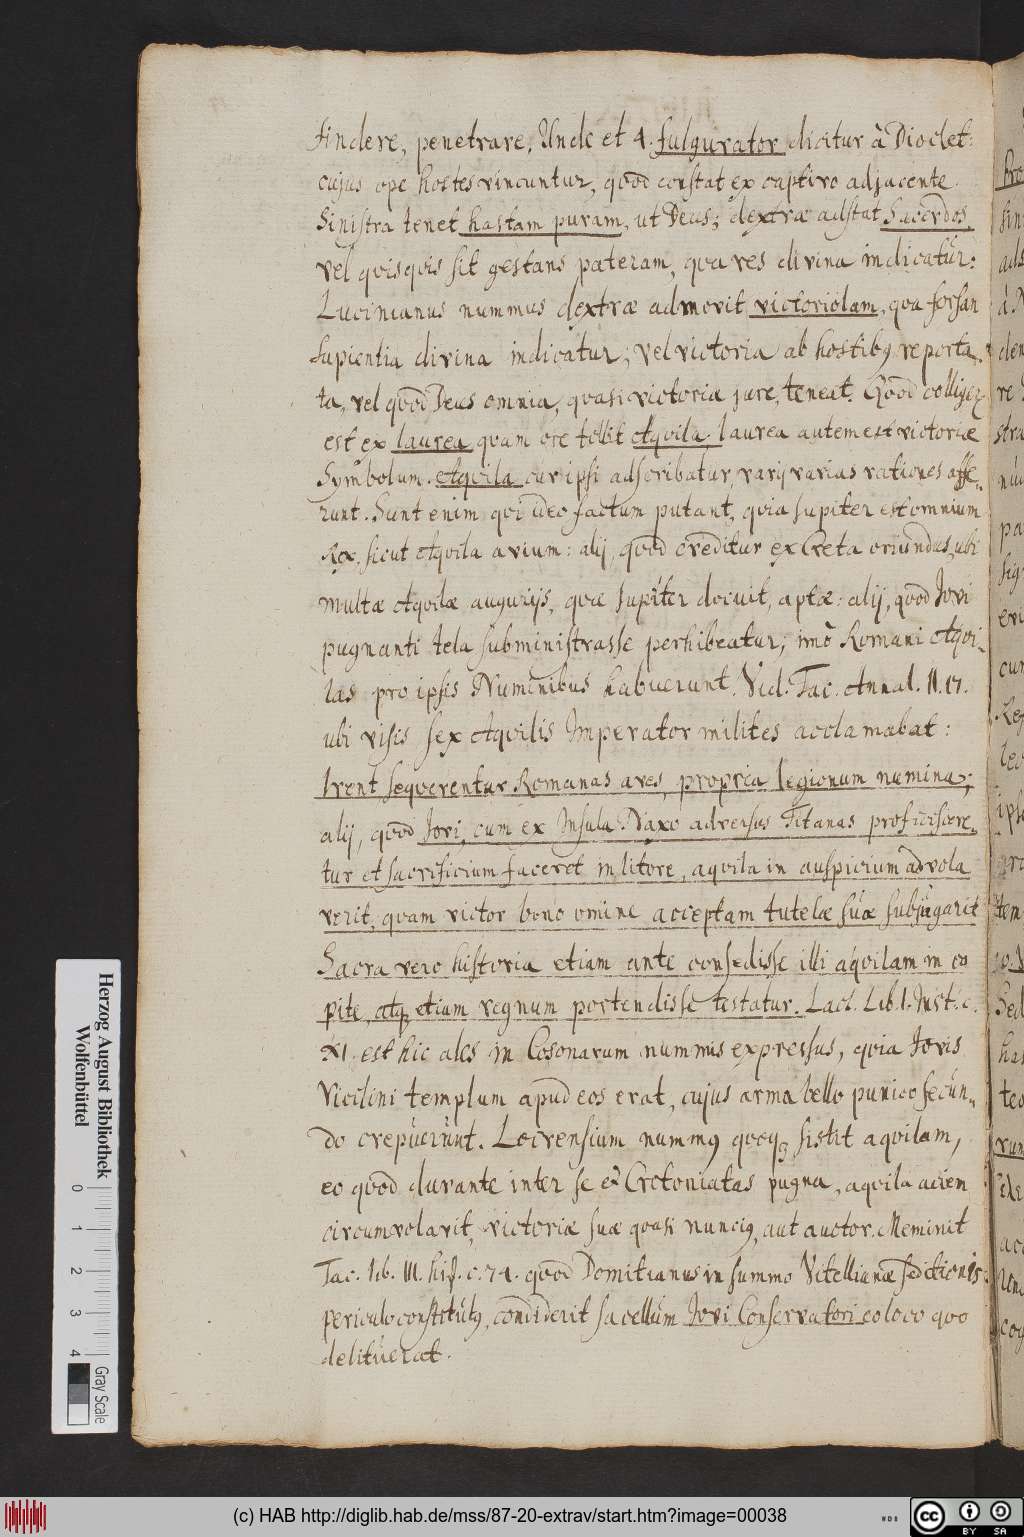 findere, penetrare. Unde et 4. fulgurator dicitur à Dioclet:
cujus ope hostes vincuntur, quod constat ex captivo adjacente.
Sinistra tenet hastam puram, ut Deus; dextræ adstat Sacerdos,
vel quisquis sit gestans pateram, qua res divina indicatur:
Lucinianus nummus dextræ admovit victoriolam, qua forsan
sapientia divina indicatur; vel victoria ab hostibq reporta„
ta, vel quod Deus omnia, quasi victoriæ jure, teneat. Quod
est ex laurea quam ore tollit Aquila, laurea autem est victoriæ
Symbolum. Aquila cur ipsi adscribatur, varij varias rationes affe„
runt. Sunt enim qui ideo factum putant, quia Jupiter est omnium
Rex, sicut Aquila avium: alij, quod creditur ex Creta oriundus, ubi
multæ Aquilæ augurijs, quæ Jupiter docuit, aptæ: alij, quod Jovi
pugnanti tela subministrasse perhibeatur; imò Romani Aqui„
las pro ipsis Numinibus habuerunt. Vid. Tac. Annal. II. 17.
ubi visis sex Aquilis Imperator milites acclamabat:
Irent sequerentur Romanas aves, propria legionum numina;
alij, quod Jovi, cum ex Insula Naxo adversus Titanas proficisce„
tur et sacrificium faceret in litore, aquila in auspicium advola
verit, quam victor bono omine acceptam tutelæ suæ subjugarit
Sacra vero historia etiam ante consedisse illi aquilam in ca
pite, atq etium regnum portendisse testatur. Lact. Lib. I. Inst. c.
XI. est hic ales in Cosonarum nummis expressus, quia Jovis
Vicilini templum apud eos erat, cujus arma bello punico secun„
do crepuerunt. Locrensium nummq quoq sistit aquilam,
eo quod durante inter se & Crotoniatas pugna, aquila aciem
circumvolavit, victoriæ suæ quasi nunciq, aut auctor. Meminit
Tac. lib. III. hist. c. 74. quod Domitianus in summo Vitellianæ seditionis
periculo constitutq, condiderit sacellum Jovi Conservatori eo loco quo
delituerat.
Herzog August Bibliothek
Wolfenbüttel
0 1 2 3 4
Gray Scale
(c) HAB http://diglib.hab.de/mss/87-20-extrav/start.htm?image=00038
cc BY SA